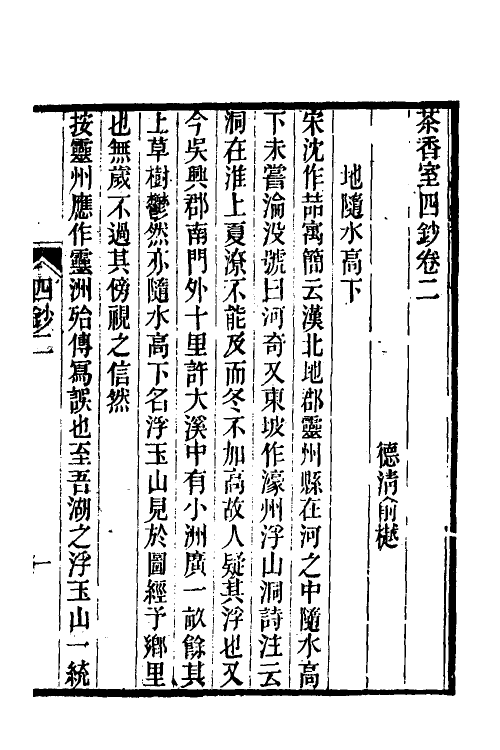 茶香室四鈔卷二
德清俞樾
地隨水高下
宋沈作喆寓簡云漢北地郡靈州縣在河之中隨水高
下未嘗淪没號曰河奇又東坡作濠州浮山洞詩注云
洞在淮上夏潦不能及而冬不加高故人疑其浮也又
今吳興郡南門外十里許大溪中有小洲廣一畝餘其
上草樹鬱然亦隨水高下名浮玉山見於圖經予鄉里
也無歲不過其傍視之信然
按靈州應作靈洲殆傳寫誤也至吾湖之浮玉山一統
四鈔二
一